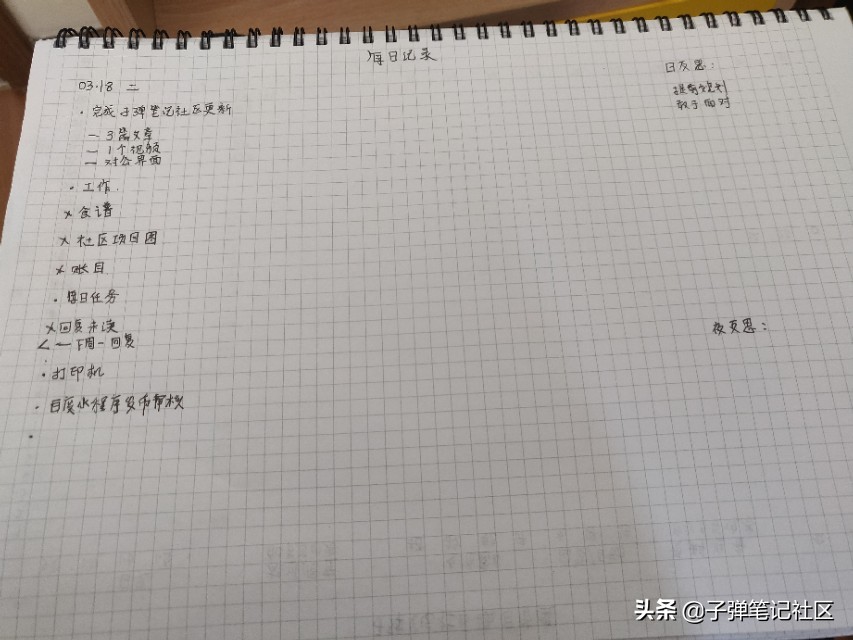 每日记录
03.18 二
· 完成子弹笔记社区更新
— 3篇文章
— 1个视频
— 对公界面
· 工作
× 食谱
× 社区项目图
× 账目
· 每日任务
× 回复未读
< — 下周一回复
· 打印机
· 百度小程序发布审核
·
日反思：
提前规划
敢于面对
夜反思：
头条 @子弹笔记社区